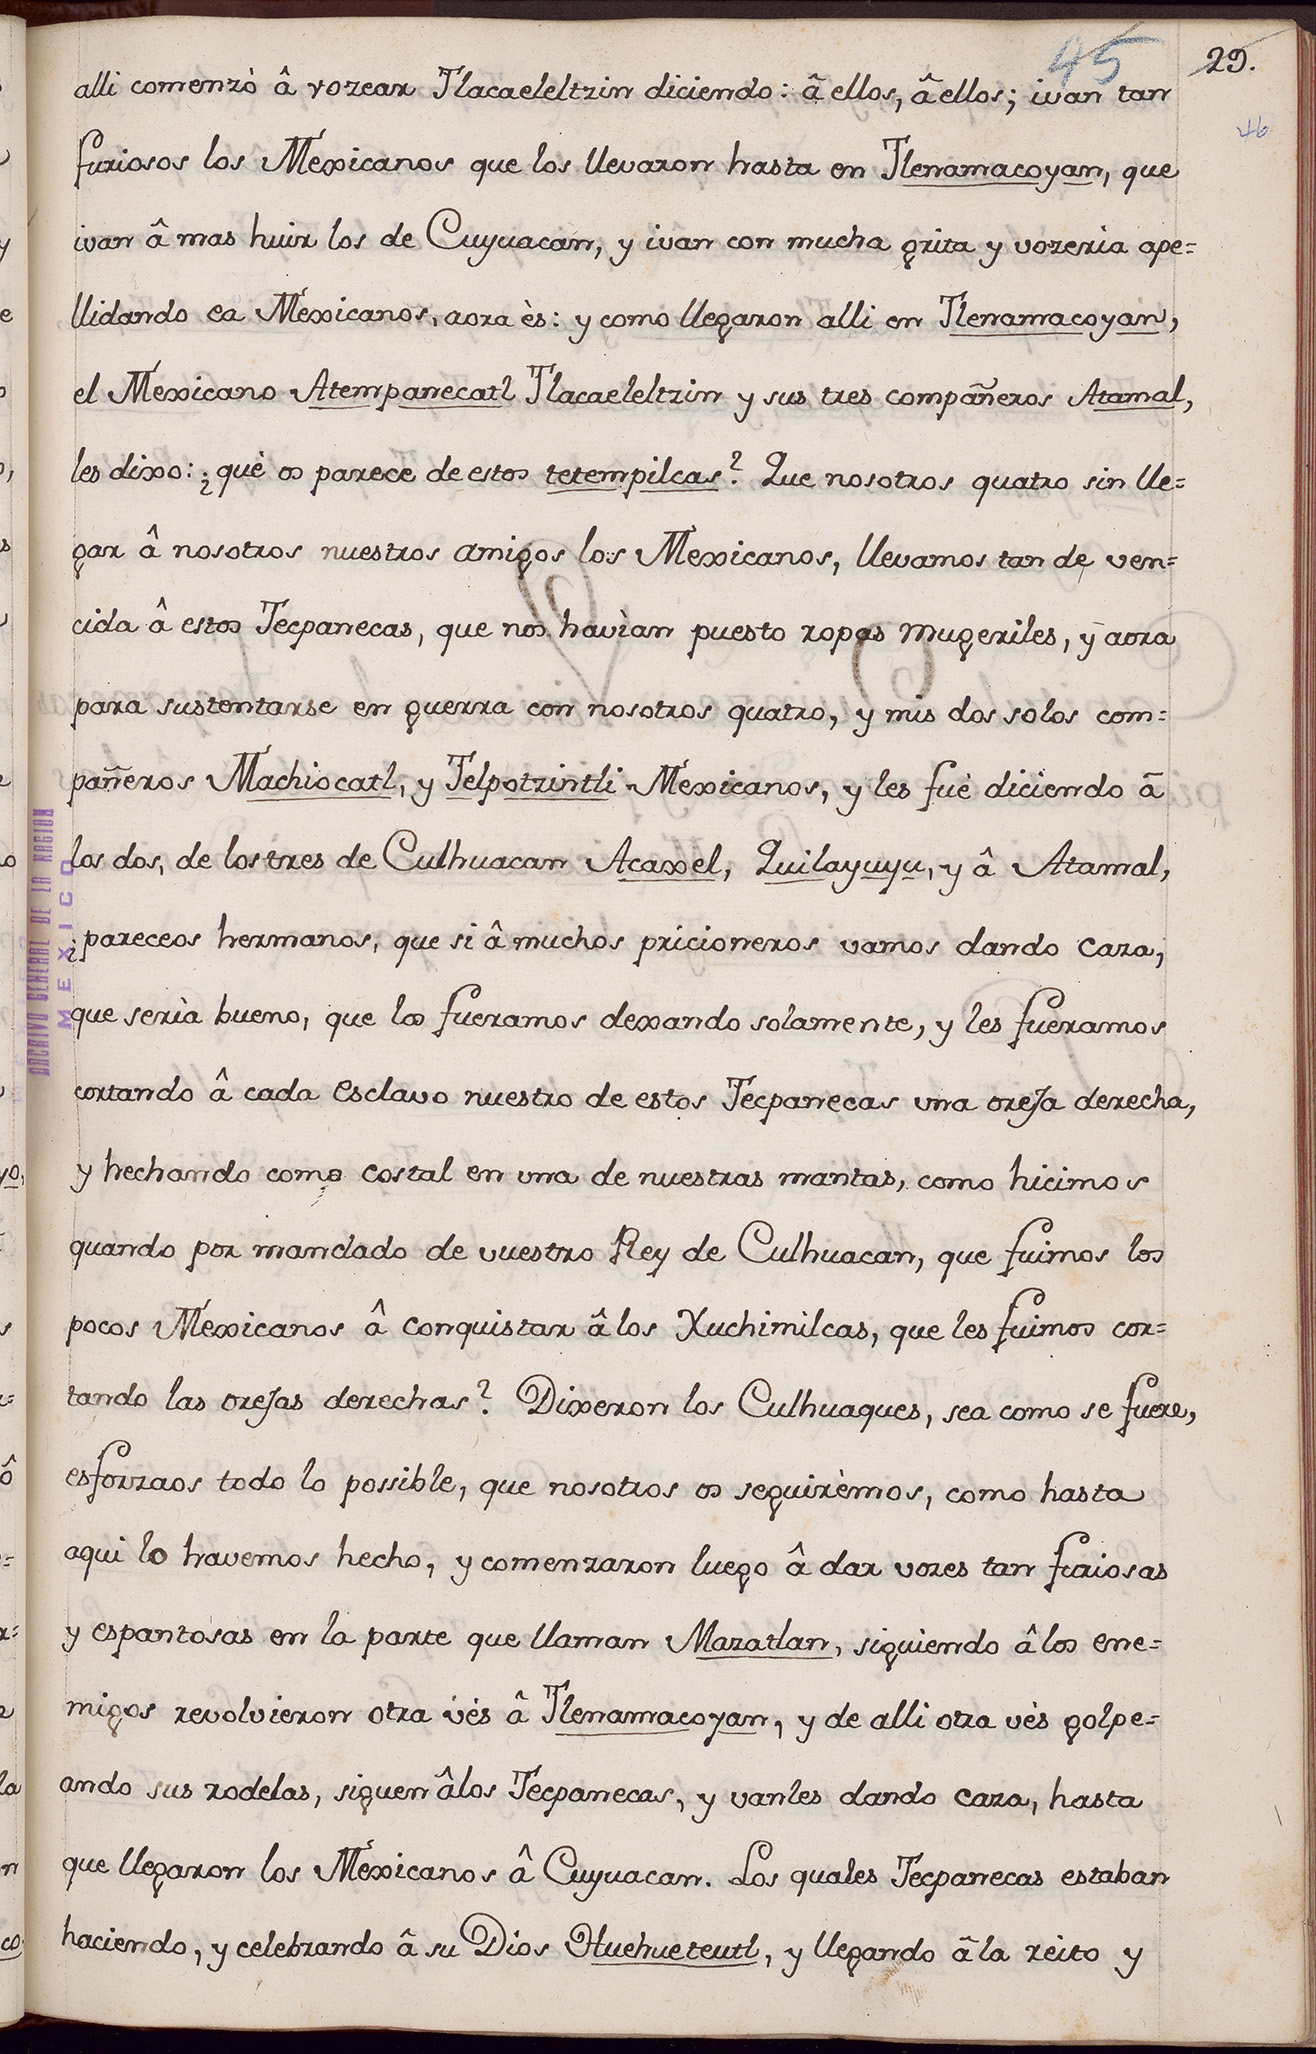 45
29.
46
alli comenzò â vozear Tlacaeleltzin diciendo: â ellos, â ellos; ivan tan
furiosos los Mexicanos que los llevaron hasta en Tlenamacoyan, que
ivan â mas huir los de Cuyuacan, y ivan con mucha grita y vozeria ape=
llidando ea Mexicanos, aora ès: y como llegaron alli en Tlenamacoyan,
el Mexicano Atempanecatl Tlacaeleltzin y sus tres compañeros Atamal,
les dixo: ¿què os parece de estos tetempilcas? Que nosotros quatro sin lle=
gar â nosotros nuestros amigos los Mexicanos, llevamos tan de ven=
cida â estos Tecpanecas, que nos havìan puesto ropas mugeriles, y aora
para sustentarse en guerra con nosotros quatro, y mis dos solos com=
pañeros Machiocatl, y Telpotzintli Mexicanos, y les fuè diciendo â
los dos, de los tres de Culhuacan Acaxel, Quilayuyu, y â Atamal,
¿pareceos hermanos, que si â muchos pricioneros vamos dando caza,
que serìa bueno, que los fueramos dexando solamente, y les fueramos
cortando â cada esclavo nuestro de estos Tecpanecas una oreja derecha,
y hechando como costal en una de nuestras mantas, como hicimos
quando por mandado de vuestro Rey de Culhuacan, que fuimos los
pocos Mexicanos â conquistar â los Xuchimilcas, que les fuimos cor=
tando las orejas derechas? Dixeron los Culhuaques, sea como se fuere,
esforzaos todo lo possible, que nosotros os seguirèmos, como hasta
aqui lo havemos hecho, y comenzaron luego â dar vozes tan furiosas
y espantosas en la parte que llaman Mazatlan, siguiendo â los ene=
migos revolvieron otra vès â Tlenamacoyan, y de alli otra vès golpe=
ando sus rodelas, siguen â los Tecpanecas, y vanles dando caza, hasta
que llegaron los Mexicanos â Cuyuacan. Los quales Tecpanecas estaban
haciendo, y celebrando â su Dios Huehueteutl, y llegando â la reito y
ARCHIVO GENERAL DE LA NACION
MEXICO